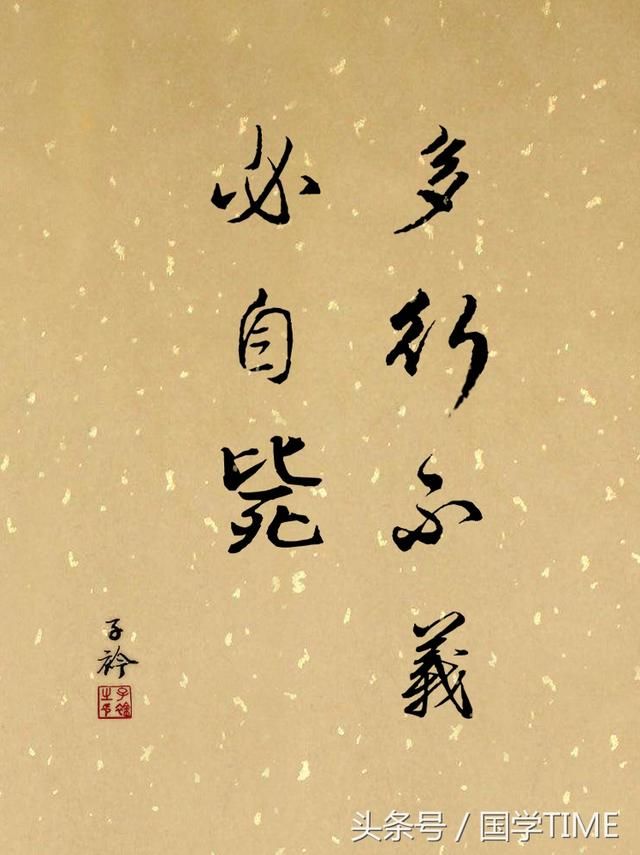 多行不義
必自毙
子衿
头条号 / 国学TIME